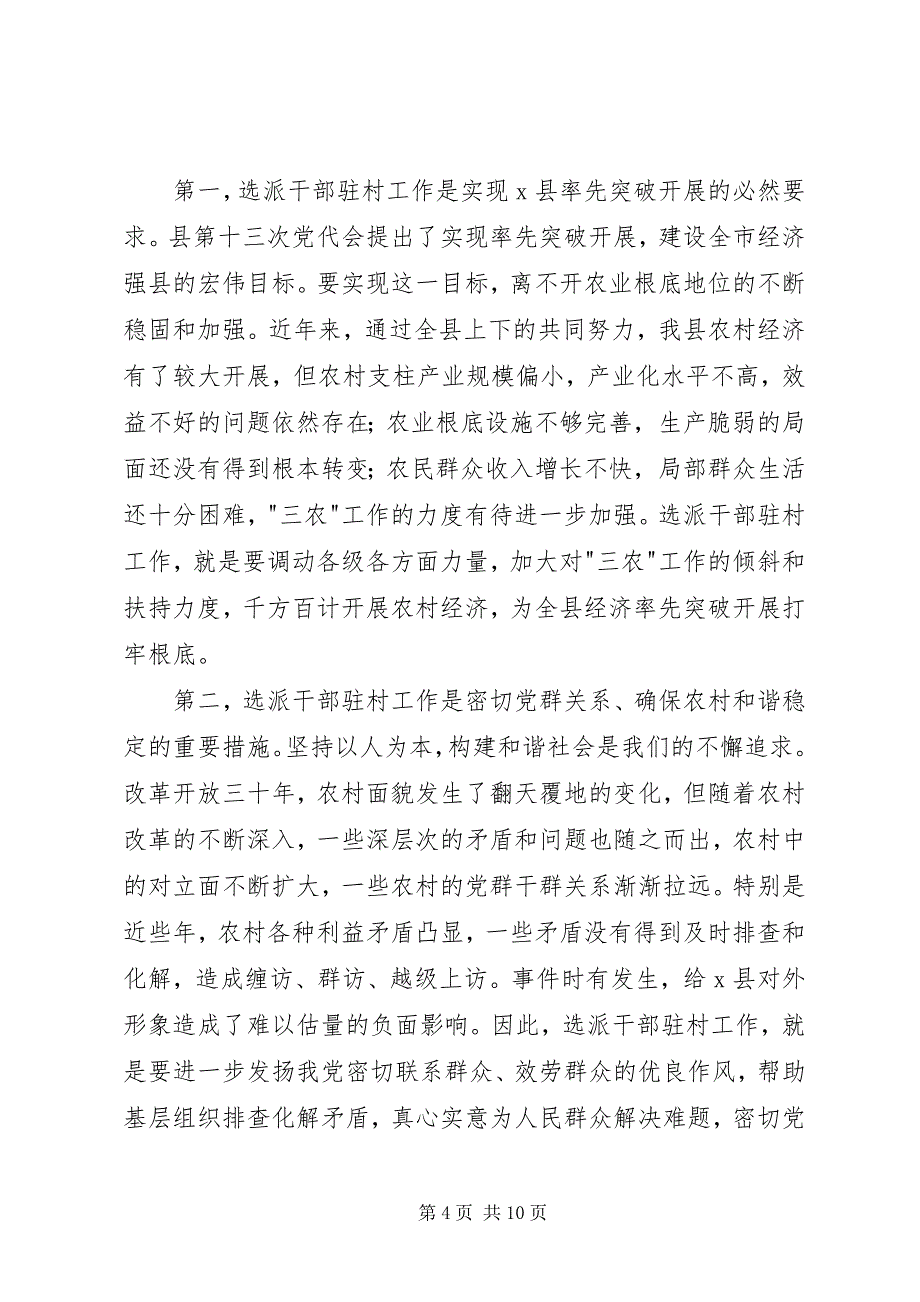 第一，选派干部驻村工作是实现 x 县率先突破开展的必然要
求。县第十三次党代会提出了实现率先突破开展，建设全市经济
强县的宏伟目标。要实现这一目标，离不开农业根底地位的不断
稳固和加强。近年来，通过全县上下的共同努力，我县农村经济
有了较大开展，但农村支柱产业规模偏小，产业化水平不高，效
益不好的问题依然存在；农业根底设施不够完善，生产脆弱的局
面还没有得到根本转变；农民群众收入增长不快，局部群众生活
还十分困难，"三农"工作的力度有待进一步加强。选派干部驻村
工作，就是要调动各级各方面力量，加大对"三农"工作的倾斜和
扶持力度，千方百计开展农村经济，为全县经济率先突破开展打
牢根底。
第二，选派干部驻村工作是密切党群关系、确保农村和谐稳
定的重要措施。坚持以人为本，构建和谐社会是我们的不懈追求。
改革开放三十年，农村面貌发生了翻天覆地的变化，但随着农村
改革的不断深入，一些深层次的矛盾和问题也随之而出，农村中
的对立面不断扩大，一些农村的党群干群关系渐渐拉远。特别是
近些年，农村各种利益矛盾凸显，一些矛盾没有得到及时排查和
化解，造成缠访、群访、越级上访。事件时有发生，给 x 县对外
形象造成了难以估量的负面影响。因此，选派干部驻村工作，就
是要进一步发扬我党密切联系群众、效劳群众的优良作风，帮助
基层组织排查化解矛盾，真心实意为人民群众解决难题，密切党
第 4 页 共 10 页